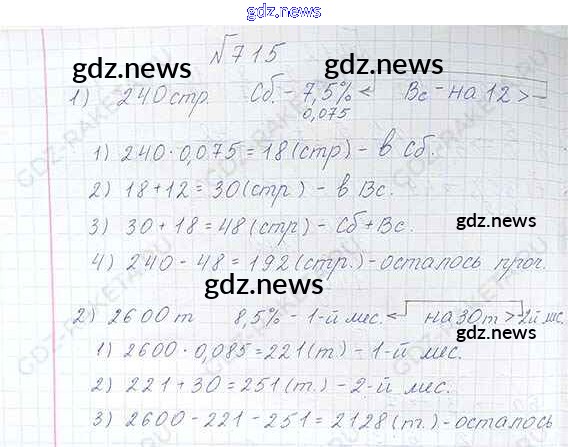 gdz.news
№715
gdz.news gdz.news
1) 240 стр. Сб. - 7,5% < Вс - на 12 > -
0,075
1) 240 · 0,075 = 18 (стр) - в Сб.
2) 18 + 12 = 30 (стр) - в Вс.
3) 30 + 18 = 48 (стр) - Сб + Вс.
gdz.news
4) 240 - 48 = 192 (стр.) - осталось проч.
gdz.news
2) 2600 т 8,5% - 1-й мес. < на 30 т > 2й мес.
gdz.news
1) 2600 · 0,085 = 221 (т) - 1-й мес.
2) 221 + 30 = 251 (т.) - 2-й мес.
3) 2600 - 221 - 251 = 2128 (т.) - осталось
gdz.news